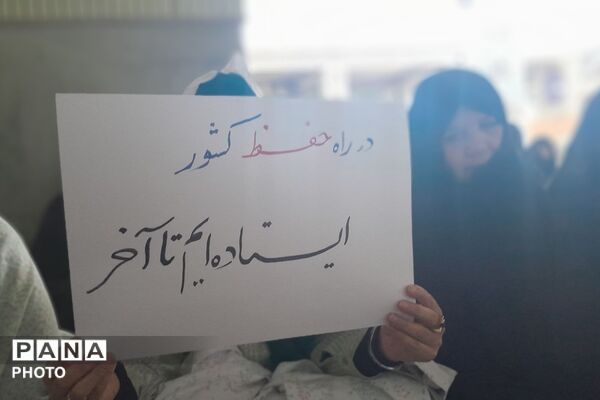 در راه حفظ کشور
ایستاده ایم تا آخر
PANA
PHOTO